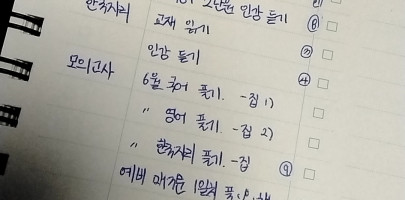 한국지리 2단원 인강 듣기
교재 읽기 ⑧
인강 듣기 ⑦
모의고사 6월 국어 풀기. -집 1) ④
〃 영어 풀기. -집 2)
〃 한국지리 풀기. -집 ⑨
예비 매거진 1일치